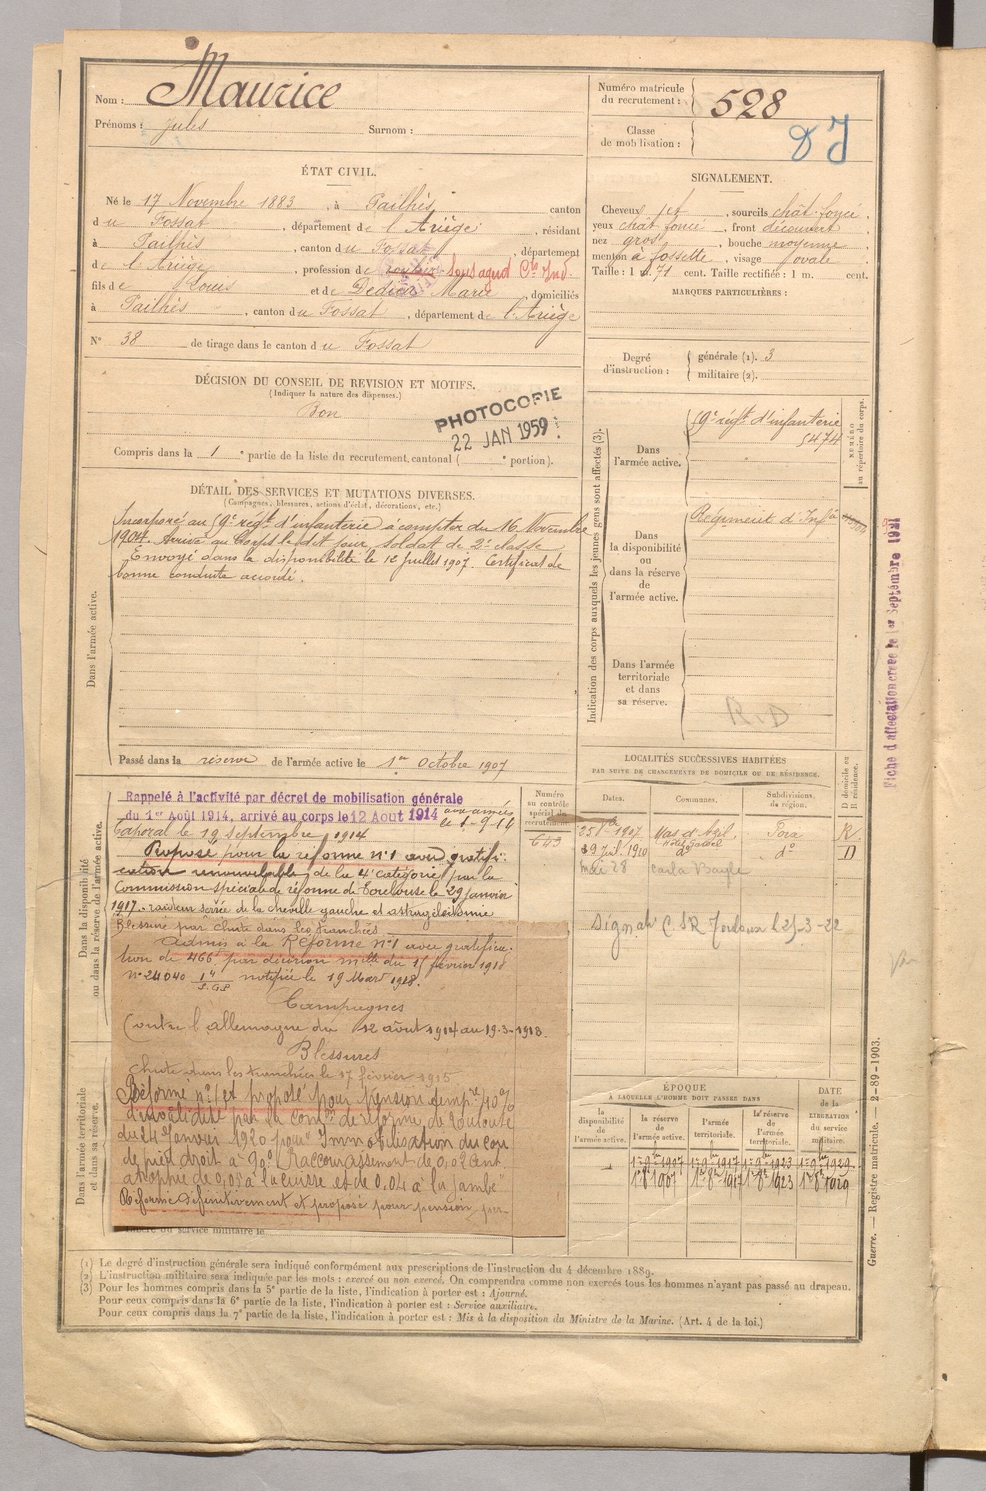 Nom : Maurice
Prénoms : Jules Surnom :
Numéro matricule du recrutement : 528
Classe de mobilisation :
ÉTAT CIVIL.
Né le 17 Novembre 1883, à Pailhès, canton
du Fossat, département de l'Ariège, résidant
à Pailhès, canton du Fossat, département
de l'Ariège, profession de sous agent Cies Ind.
fils de Louis et de Dedieu Marie, domiciliés
à Pailhès, canton du Fossat, département de l'Ariège
N° 38 de tirage dans le canton du Fossat
DÉCISION DU CONSEIL DE REVISION ET MOTIFS.
(Indiquer la nature des dispenses.)
Bon
PHOTOCOPIE
22 JAN 1959
Compris dans la 1e partie de la liste du recrutement cantonal ( e portion).
DÉTAIL DES SERVICES ET MUTATIONS DIVERSES.
(Campagnes, blessures, actions d'éclat, décorations, etc.)
Dans l'armée active.
Incorporé au 59e régt d'infanterie à compter du 16 Novembre
1904. Arrivé au Corps le dit jour, soldat de 2e classe.
Envoyé dans la disponibilité le 12 Juillet 1907. Certificat de
bonne conduite accordé.
Passé dans la réserve de l'armée active le 1er Octobre 1907
Dans la disponibilité ou dans la réserve de l'armée active.
Rappelé à l'activité par décret de mobilisation générale
du 1er Août 1914, arrivé au corps le 12 Aout 1914 aux armées
le 1-9-14
Caporal le 19 septembre 1914
Proposé pour la réforme n°1 avec gratifi-
cation renouvelable de la 4e catégorie par la
Commission spéciale de réforme de Toulouse le 29 janvier
1917. raideur serrée de la cheville gauche et astragalectomie
Blessure par chute dans les tranchées
Admis à la Réforme n°1 avec gratifica-
tion de 466f par décision mlle du 15 février 1918
n° 24040 notifiée le 19 Mars 1918.
Campagnes
Contre l'allemagne du 12 août 1914 au 19-3-1918.
Blessures
chute dans les tranchées le 17 février 1915
Dans l'armée territoriale et dans sa réserve.
Réformé n°1 et proposé pour pension temp.re 40%
d'invalidité par la comon de réforme de Toulouse
du 24 Janvier 1920 pour Immobilisation du cou
de pied droit à 90° Raccourcissement de 0,02 cent
atrophie de 0,03 à la cuisse et de 0.04 à la jambe
Réformé définitivement et proposé pour pension per-
du service militaire le
SIGNALEMENT.
Cheveux jet, sourcils chât foncé,
yeux chât foncé, front découvert
nez gros, bouche moyenne
menton à fossette, visage ovale
Taille : 1 m. 71 cent. Taille rectifiée : 1 m. cent.
MARQUES PARTICULIÈRES :
Degré d'instruction : générale (1). 3
militaire (2).
Indication des corps auxquels les jeunes gens sont affectés (3).
NUMÉRO au répertoire du corps.
Dans l'armée active. 59e régt d'infanterie
5474
Dans la disponibilité ou dans la réserve de l'armée active. Régiment d'Infie
Dans l'armée territoriale et dans sa réserve.
R.D
Fiche d'affectation creee le 1er Septembre 1921
LOCALITÉS SUCCESSIVES HABITÉES
PAR SUITE DE CHANGEMENTS DE DOMICILE OU DE RÉSIDENCE.
Numéro au contrôle spécial du recrutement.
Dates. Communes. Subdivisions de région. D domicile ou R résidence.
643
1907 Mas d'Azil, Foix R
29 Juil. 1910 do do D
mai 28 carla Bayle
Signalé C.SR Toulouse le 25-3-22
ÉPOQUE
À LAQUELLE L'HOMME DOIT PASSER DANS
DATE de la LIBÉRATION du service militaire.
la disponibilité de l'armée active. la réserve de l'armée active. l'armée territoriale. la réserve de l'armée territoriale.
1er 9bre 1907 1er 9bre 1917 1er 9bre 1923 1er 9bre 1929
1er 8bre 1907 1er 8bre 1917 1er 8bre 1923 1er 8bre 1929
Guerre. — Registre matricule. — 2-89-1903.
(1) Le degré d'instruction générale sera indiqué conformément aux prescriptions de l'instruction du 4 décembre 1889.
(2) L'instruction militaire sera indiquée par les mots : exercé ou non exercé. On comprendra comme non exercés tous les hommes n'ayant pas passé au drapeau.
(3) Pour les hommes compris dans la 5e partie de la liste, l'indication à porter est : Ajourné.
Pour ceux compris dans la 6e partie de la liste, l'indication à porter est : Service auxiliaire.
Pour ceux compris dans la 7e partie de la liste, l'indication à porter est : Mis à la disposition du Ministre de la Marine. (Art. 4 de la loi.)